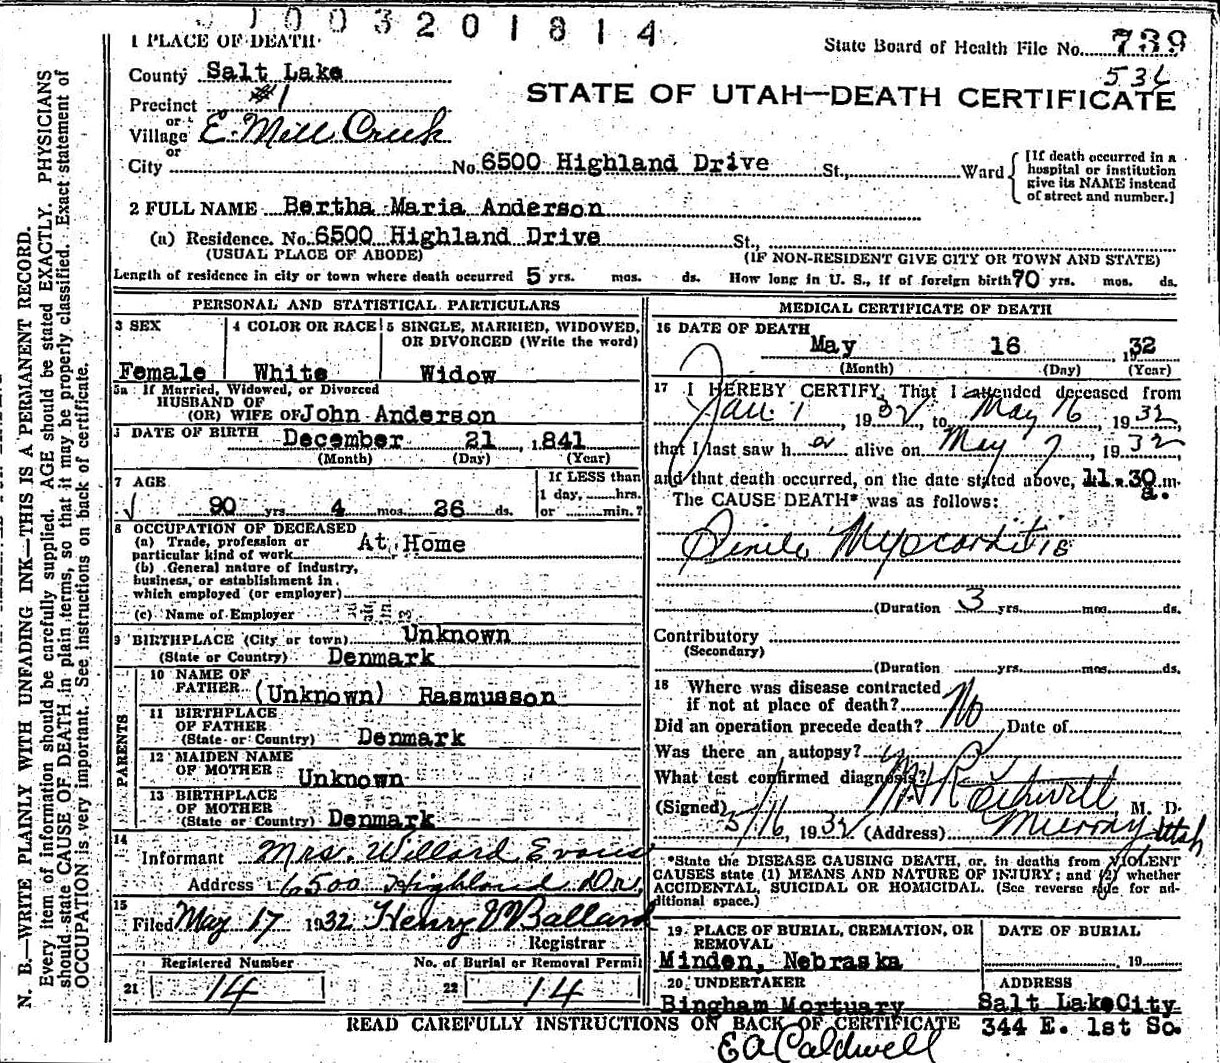 1003201814
1 PLACE OF DEATH
State Board of Health File No. 739
County Salt Lake
536
Precinct #1
STATE OF UTAH—DEATH CERTIFICATE
or
Village E. Mill Creek
or
City No. 6500 Highland Drive St., Ward
[If death occurred in a
hospital or institution
give its NAME instead
of street and number.]
2 FULL NAME Bertha Maria Anderson
(a) Residence. No. 6500 Highland Drive St.,
(USUAL PLACE OF ABODE) (IF NON-RESIDENT GIVE CITY OR TOWN AND STATE)
Length of residence in city or town where death occurred 5 yrs. mos. ds. How long in U. S., if of foreign birth 70 yrs. mos. ds.
PERSONAL AND STATISTICAL PARTICULARS
3 SEX
Female
4 COLOR OR RACE
White
5 SINGLE, MARRIED, WIDOWED,
OR DIVORCED (Write the word)
Widow
5a If Married, Widowed, or Divorced
HUSBAND OF
(OR) WIFE OF John Anderson
DATE OF BIRTH December 21, 1841
(Month) (Day) (Year)
7 AGE
90 yrs. 4 mos. 26 ds.
If LESS than
1 day, hrs.
or min.?
8 OCCUPATION OF DECEASED
(a) Trade, profession or
particular kind of work At Home
(b) General nature of industry,
business, or establishment in
which employed (or employer)
(c) Name of Employer
9 BIRTHPLACE (City or town) Unknown
(State or Country) Denmark
PARENTS
10 NAME OF
FATHER (Unknown) Rasmusson
11 BIRTHPLACE
OF FATHER
(State or Country) Denmark
12 MAIDEN NAME
OF MOTHER Unknown
13 BIRTHPLACE
OF MOTHER
(State or Country) Denmark
14
Informant Mrs. Willard Evans
Address 6500 Highland Dr.
15
Filed May 17 1932 Henry V Ballard
Registrar
Registered Number No. of Burial or Removal Permit
21 14 22 14
MEDICAL CERTIFICATE OF DEATH
16 DATE OF DEATH
May 16, 1932
(Month) (Day) (Year)
17 I HEREBY CERTIFY, That I attended deceased from
Jan. 1, 1932, to May 16, 1932
that I last saw her alive on May 7, 1932
and that death occurred, on the date stated above, 11.30 a.m.
The CAUSE DEATH* was as follows:
Senile Myocarditis
(Duration 3 yrs. mos. ds.
Contributory
(Secondary)
(Duration yrs. mos. ds.
18 Where was disease contracted
if not at place of death?
Did an operation precede death? No Date of
Was there an autopsy?
What test confirmed diagnosis?
(Signed) M. D.
5/16, 1932 (Address) Murray Utah
*State the DISEASE CAUSING DEATH, or, in deaths from VIOLENT
CAUSES state (1) MEANS AND NATURE OF INJURY; and (2) whether
ACCIDENTAL, SUICIDAL OR HOMICIDAL. (See reverse side for ad-
ditional space.)
19 PLACE OF BURIAL, CREMATION, OR
REMOVAL
Minden, Nebraska
DATE OF BURIAL
19
20 UNDERTAKER
Bingham Mortuary
ADDRESS
Salt Lake City
344 E. 1st So.
READ CAREFULLY INSTRUCTIONS ON BACK OF CERTIFICATE
E A Caldwell
N. B.—WRITE PLAINLY WITH UNFADING INK—THIS IS A PERMANENT RECORD.
Every item of information should be carefully supplied. AGE should be stated EXACTLY. PHYSICIANS
should state CAUSE OF DEATH in plain terms, so that it may be properly classified. Exact statement of
OCCUPATION is very important. See instructions on back of certificate.